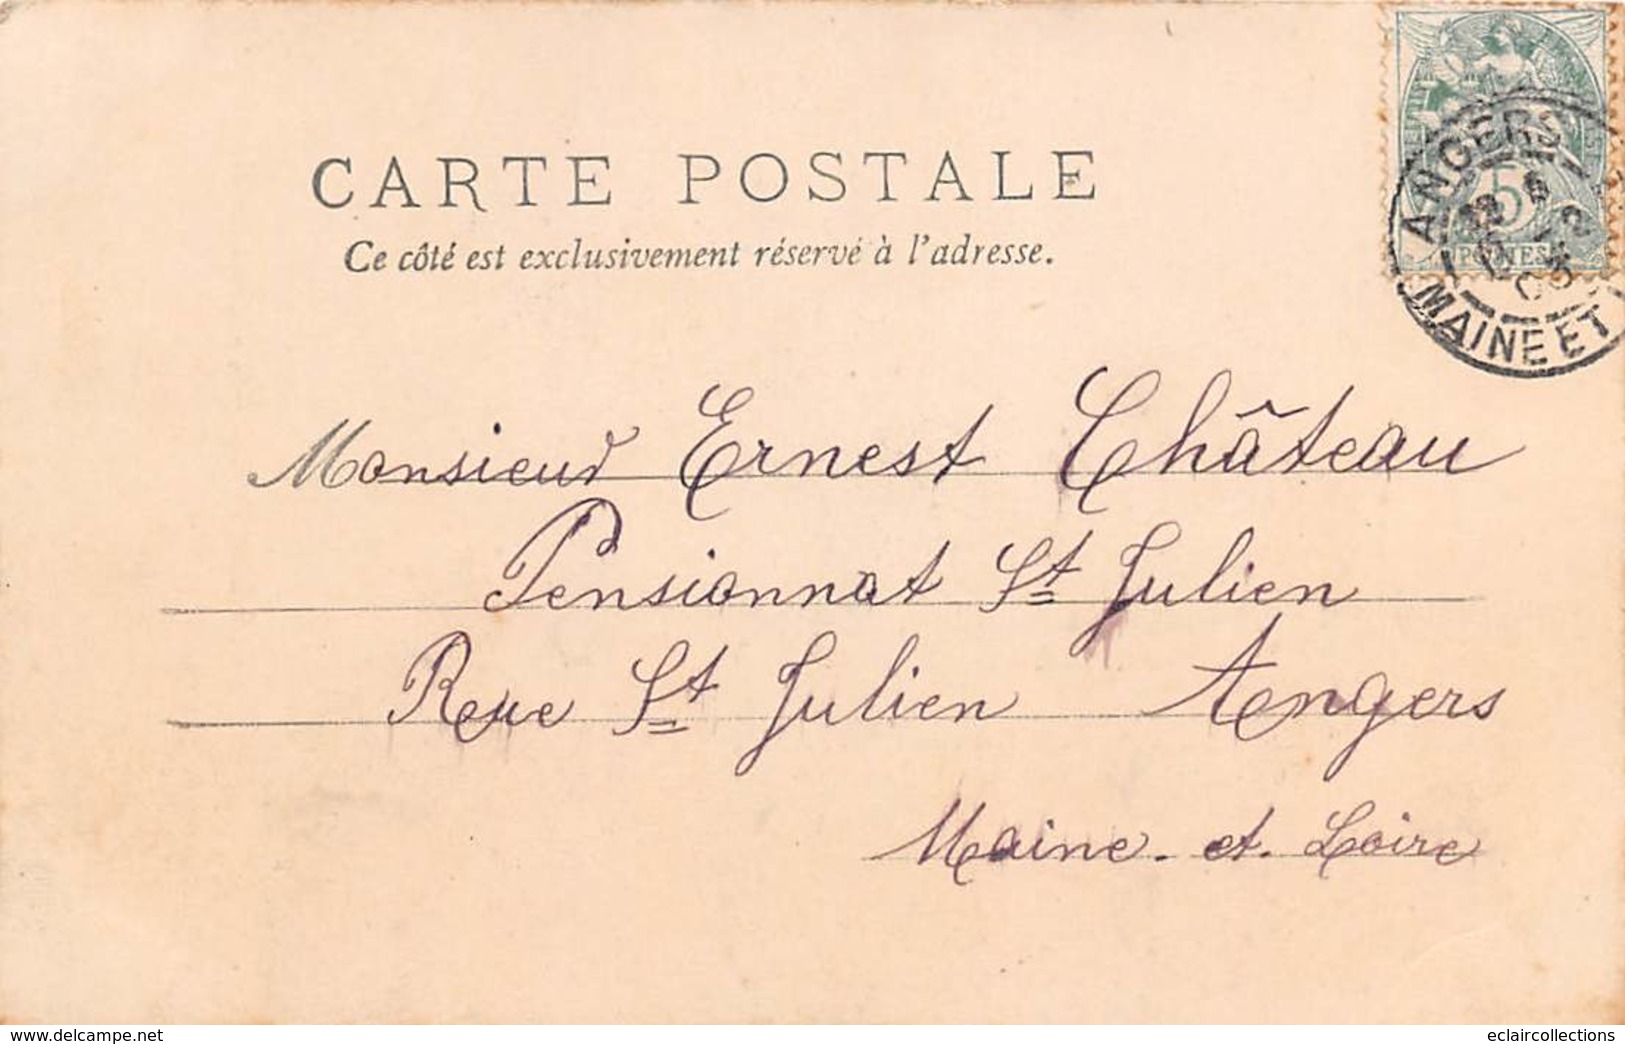 CARTE POSTALE
Ce côté est exclusivement réservé à l'adresse.
ANGERS
5
MAINE ET
Monsieur Ernest Château
Pensionnat St Julien
Rue St Julien Angers
Maine-et-Loire
www.delcampe.net
eclaircollections